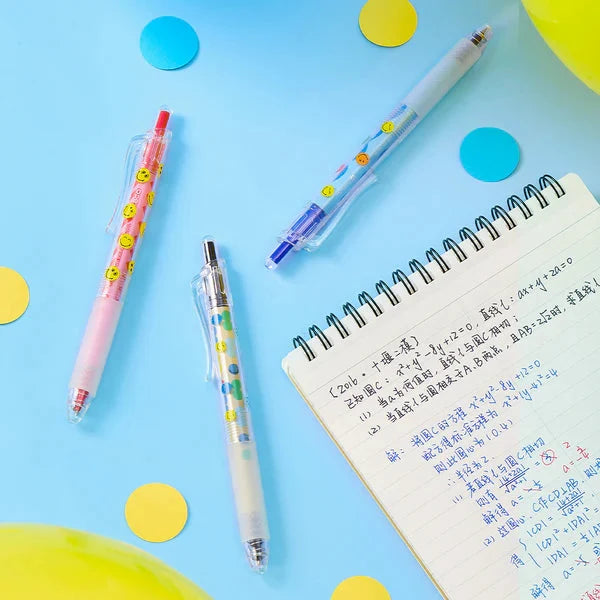 {2016·十堰二模}
已知圆C: x²+y²-8y+12=0, 直线l: ax+y+2a=0
(1) 当a为何值时, 直线l与圆C相切;
(2) 当直线l与圆相交于A.B两点, 且AB=2√2时, 求直线l
解: 将圆C的方程 x²+y²-8y+12=0
配方得标准方程为 x²+(y-4)²=4
则此圆心为(0.4)
∴半径为2
(1) 若直线l与圆C相切
则有 |4+2a|/√(a²+1) = ② 2
解得 a=
(2) 过圆心C作CD⊥AB, 则
得 { |CD|=|4+2a|/√(a²+1)
|CD|²+|DA|²=
|DA|=½|AB
解得 a=